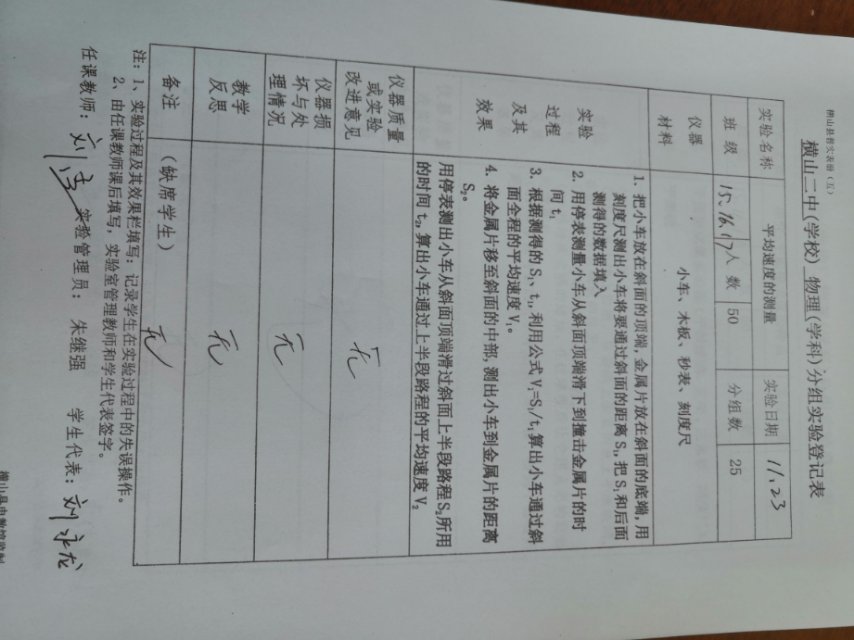 横山县教实表册（五）
横山二中(学校) 物理(学科)分组实验登记表
实验名称 平均速度的测量 实验日期 11.23
班 级 15.16.17 人 数 50 分组数 25
仪器材料 小车、木板、秒表、刻度尺
实验过程及其效果
1. 把小车放在斜面的顶端,金属片放在斜面的底端,用
刻度尺测出小车将要通过斜面的距离 S₁, 把 S₁ 和后面
测得的数据填入
2. 用停表测量小车从斜面顶端滑下到撞击金属片的时
间 t₁
3. 根据测得的 S₁、t₁, 利用公式 V₁=S₁/t₁ 算出小车通过斜
面全程的平均速度 V₁。
4. 将金属片移至斜面的中部, 测出小车到金属片的距离
S₂。
用停表测出小车从斜面顶端滑过斜面上半段路程 S₂ 所用
的时间 t₂, 算出小车通过上半段路程的平均速度 V₂
仪器质量或实验改进意见 无
仪器损坏与处理情况 无
教学反思 无
备注 (缺席学生) 无
注: 1、实验过程及其效果栏填写: 记录学生在实验过程中的失误操作。
2、由任课教师课后填写, 实验室管理教师和学生代表签字。
任课教师: 刘 实验管理员: 朱继强 学生代表: 刘永龙